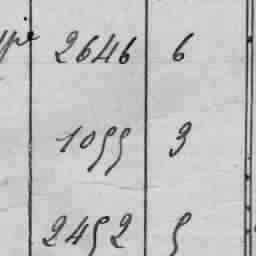 2646 6
1055 3
2452 5